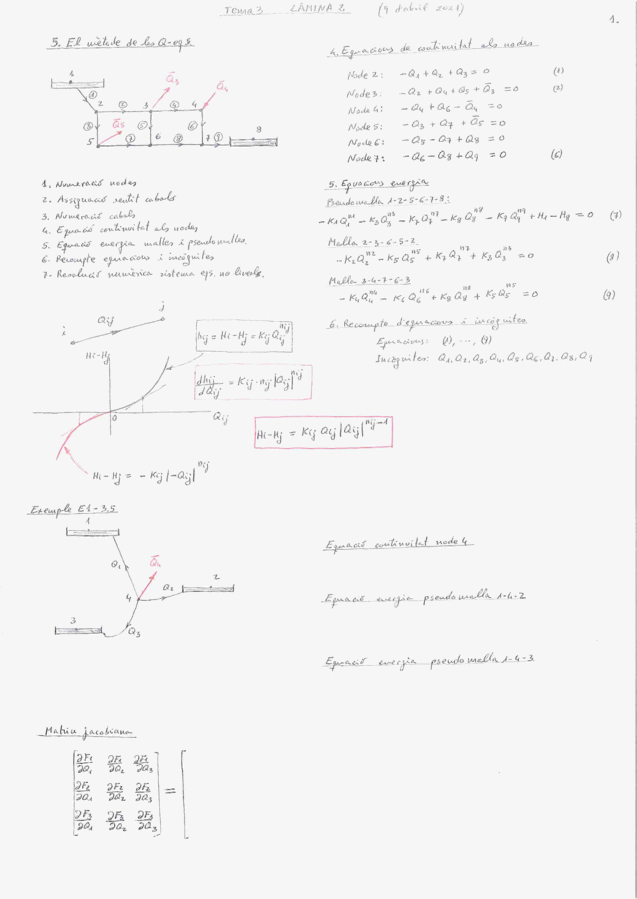 Tema 3 LÀMINA 2 (9 d'abril 2021)
1.
5. El mètode de les Q-eqs
1
Q̄3
Q̄4
①
2 ② 3 ④ 4
③ Q̄5 ⑤ ⑥ 8
5 ⑦ 6 ⑧ 7 ⑨
1. Numeració nodes
2. Assignació sentit cabals
3. Numeració cabals
4. Equació continuïtat als nodes
5. Equació energia malles i pseudomalles.
6. Recompte equacions i incògnites
7- Resolució numèrica sistema eqs. no lineals.
4. Equacions de continuïtat als nodes
Node 2: -Q1 + Q2 + Q3 = 0 (1)
Node 3: -Q2 + Q4 + Q5 + Q̄3 = 0 (2)
Node 4: -Q4 + Q6 - Q̄4 = 0
Node 5: -Q3 + Q7 + Q̄5 = 0
Node 6: -Q5 - Q7 + Q8 = 0
Node 7: -Q6 - Q8 + Q9 = 0 (6)
5. Equacions energia
Pseudomalla 1-2-5-6-7-8:
-K1Q1^n1 - K3Q3^n3 - K7Q7^n7 - K8Q8^n8 - K9Q9^n9 + H1 - H8 = 0 (7)
Malla 2-3-6-5-2
-K2Q2^n2 - K5Q5^n5 + K7Q7^n7 + K3Q3^n3 = 0 (8)
Malla 3-4-7-6-3
-K4Q4^n4 - K6Q6^n6 + K8Q8^n8 + K5Q5^n5 = 0 (9)
6. Recompte d'equacions i incògnites
Equacions: (1), ..., (9)
Incògnites: Q1, Q2, Q3, Q4, Q5, Q6, Q7, Q8, Q9
i Qij j
Hi-Hj
hij = Hi-Hj = Kij Qij^nij
dhij/dQij = Kij · nij |Qij|^nij
0 Qij
Hi-Hj = Kij Qij |Qij|^nij-1
Hi-Hj = - Kij |-Qij|^nij
Exemple E1-3.5
1
Q1 Q̄4
4 Q2 2
3
Q3
Equació continuïtat node 4
Equació energia pseudomalla 1-4-2
Equació energia pseudomalla 1-4-3
Matriu jacobiana
∂F1/∂Q1 ∂F1/∂Q2 ∂F1/∂Q3
∂F2/∂Q1 ∂F2/∂Q2 ∂F2/∂Q3 =
∂F3/∂Q1 ∂F3/∂Q2 ∂F3/∂Q3